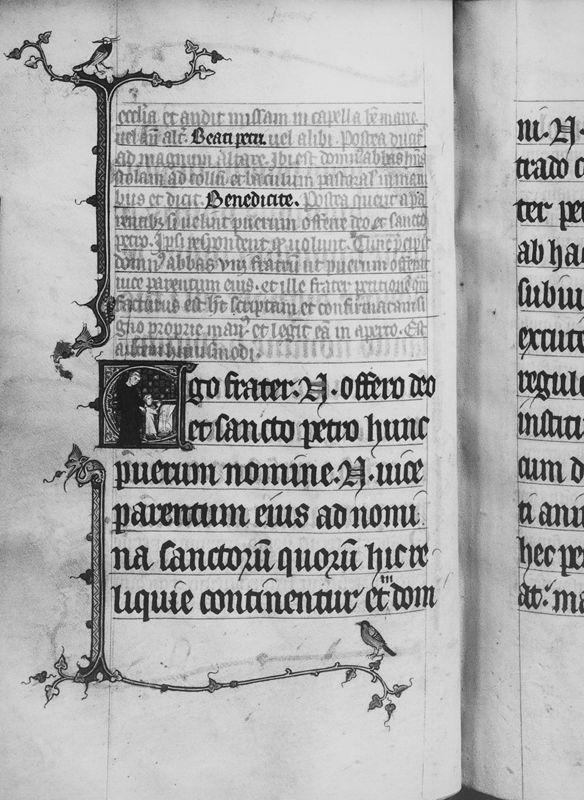 ecclia et audit missam in capella bē marie
uel añ alt'. Beati petri. uel alibi. Postea
ad magnum altare. Ibi est domin' abbas
stolam ad collū. et baculum pastoral' in mani
bus et dicit. Benedicite. Postea querit a pa
rentib; si uelint puerum offerre deo et sancto
petro. Ipsi respondent uolunt. Tunc
domin' abbas uni fratrū ut puerum offerat
uice parentum eius. et ille frater
facturus est scriptam et confirmatam si
gno proprie man'. et legit eā in aperto. Est
huiusmodi.
Ego frater. N. offero deo
et sancto petro hunc
puerum nomine. N. uice
parentum eius ad nomi
na sanctorū quorū hic re
liquie continentur et dom
ni. N.
trado
ter
ab
subiu
excute
regul
institu
cum d
ti
hec
at.